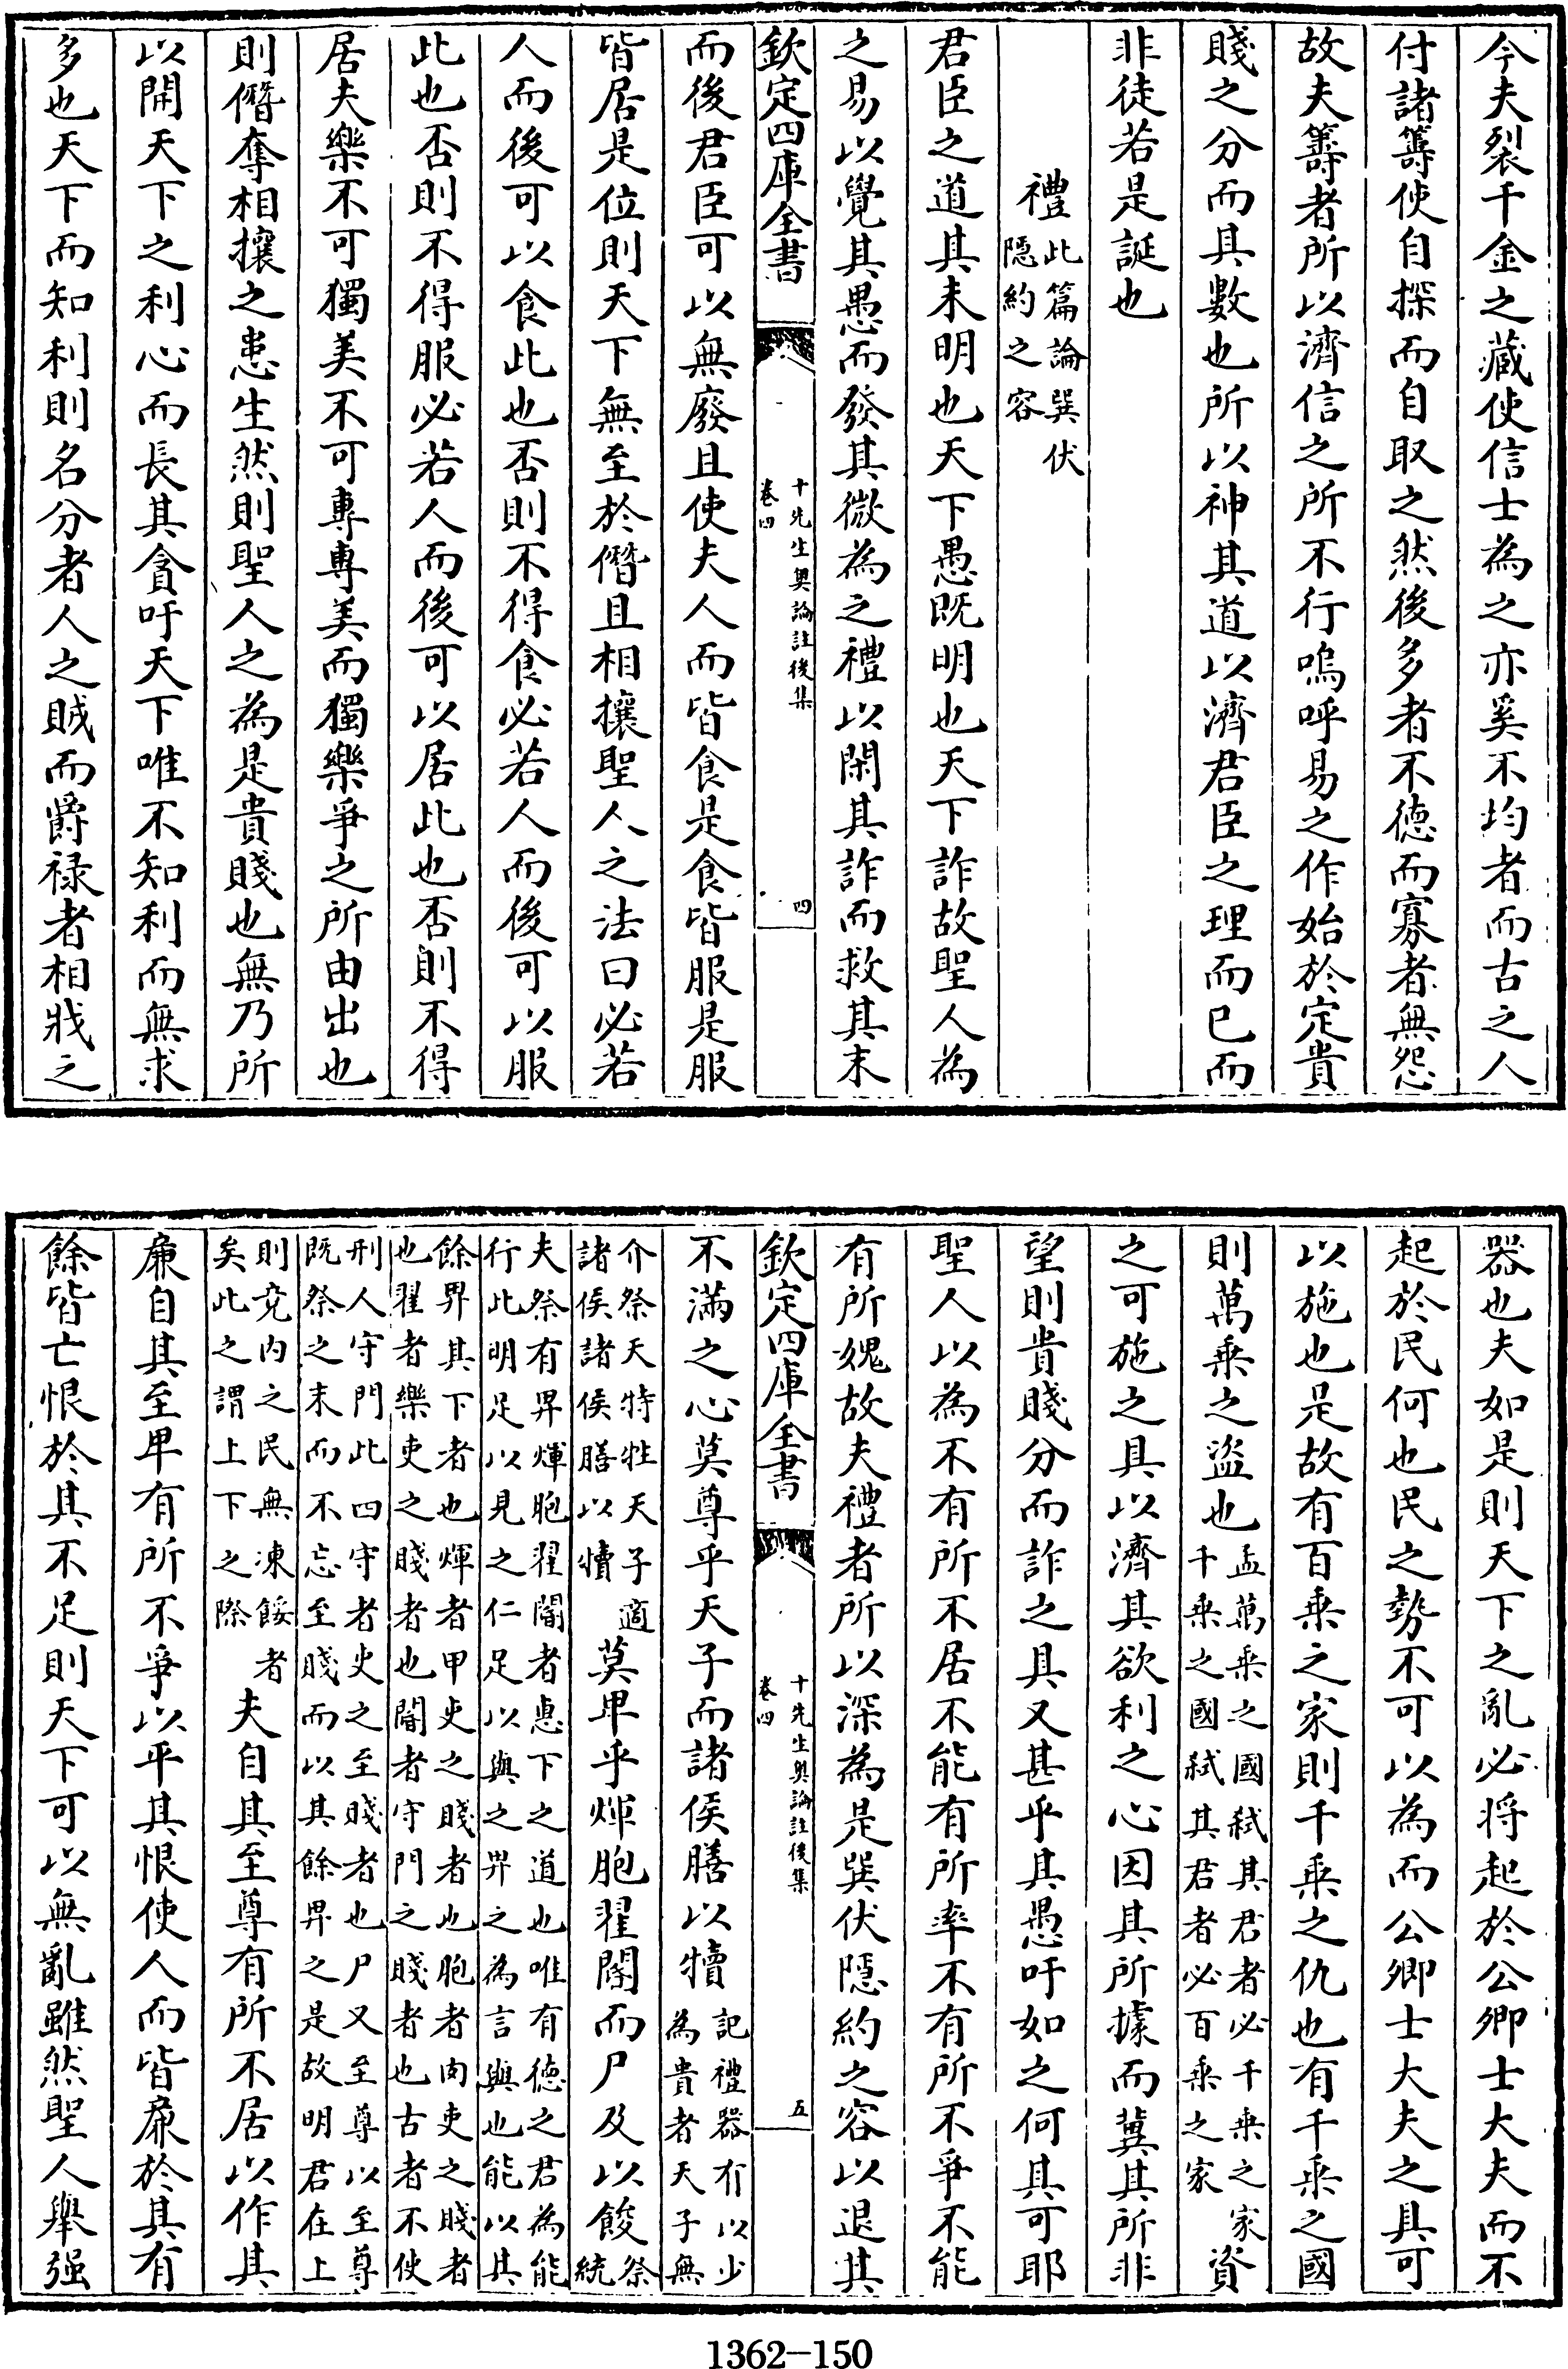 今夫裂千金之藏使信士為之亦奚不均者而古之人
付諸籌使自探而自取之然後多者不徳而寡者無怨
故夫籌者所以濟信之所不行嗚呼易之作始於定貴
賤之分而具數也所以神其道以濟君臣之理而已而
非徒若是誕也
禮此篇論巽伏
隠約之容
君臣之道其未明也天下愚既明也天下詐故聖人為
之易以覺其愚而發其微為之禮以閑其詐而救其末
欽定四庫全書
十先生奥論註後集
卷四
四
而後君臣可以無廢且使夫人而皆食是食皆服是服
皆居是位則天下無至於僭且相攘聖人之法曰必若
人而後可以食此也否則不得食必若人而後可以服
此也否則不得服必若人而後可以居此也否則不得
居夫樂不可獨美不可專專美而獨樂爭之所由出也
則僭奪相攘之患生然則聖人之為是貴賤也無乃所
以開天下之利心而長其貪吁天下唯不知利而無求
多也天下而知利則名分者人之賊而爵禄者相戕之
器也夫如是則天下之亂必将起於公卿士大夫而不
起於民何也民之勢不可以為而公卿士大夫之具可
以施也是故有百乗之家則千乗之仇也有千乗之國
則萬乗之盗也孟萬乗之國弑其君者必千乗之家
千乗之國弑其君者必百乗之家資
之可施之具以濟其欲利之心因其所據而冀其所非
望則貴賤分而詐之具又甚乎其愚吁如之何其可耶
聖人以為不有所不居不能有所率不有所不爭不能
有所媿故夫禮者所以深為是巽伏隠約之容以退其
欽定四庫全書
十先生奥論註後集
卷四
五
不滿之心莫尊乎天子而諸侯膳以犢記禮器有以少
為貴者天子無
介祭天特牲天子適
諸侯諸侯膳以犢莫卑乎煇胞翟閽而尸及以餕祭
統
夫祭有畀煇胞翟閽者惠下之道也唯有徳之君為能
行此明足以見之仁足以與之畀之為言與也能以其
餘畀其下者也煇者甲吏之賤者也胞者肉吏之賤者
也翟者樂吏之賤者也閽者守門之賤者也古者不使
刑人守門此四守者吏之至賤者也尸又至尊以至尊
既祭之末而不忘至賤而以其餘畀之是故明君在上
則竟内之民無凍餒者
矣此之謂上下之際夫自其至尊有所不居以作其
亷自其至卑有所不爭以平其恨使人而皆亷於其有
餘皆亡恨於其不足則天下可以無亂雖然聖人舉强
1362-150